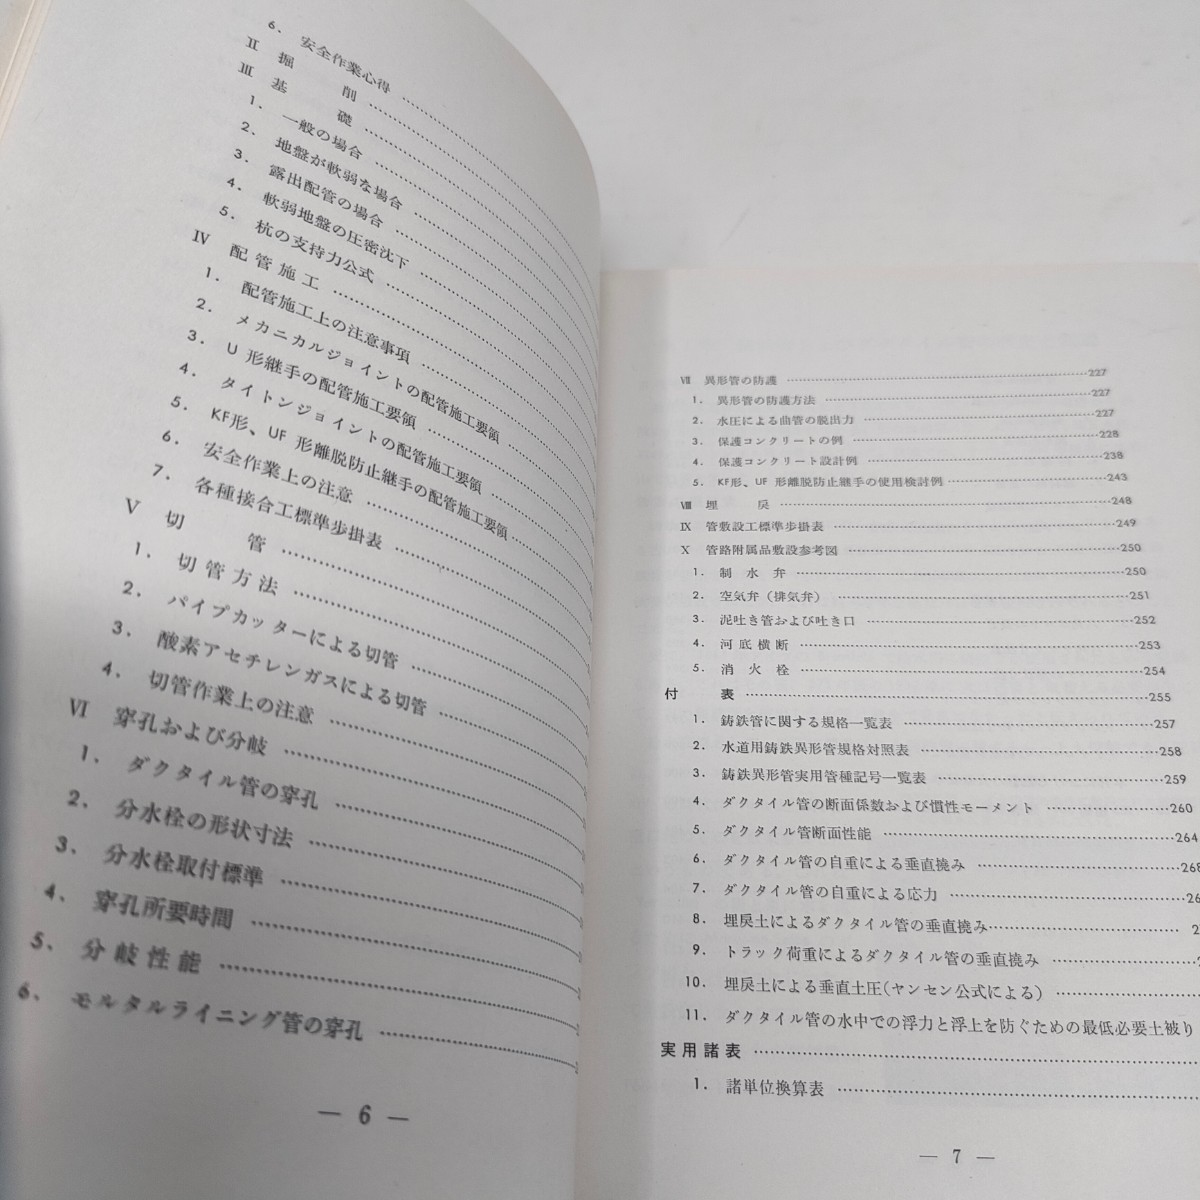 6. 安全作業心得
Ⅱ 掘 削
Ⅲ 基 礎
1. 一般の場合
2. 地盤が軟弱な場合
3. 露出配管の場合
4. 軟弱地盤の圧密沈下
5. 杭の支持力公式
Ⅳ 配管施工
1. 配管施工上の注意事項
2. メカニカルジョイントの配管施工要領
3. U 形継手の配管施工要領
4. タイトンジョイントの配管施工要領
5. KF形、UF 形離脱防止継手の配管施工要領
6. 安全作業上の注意
7. 各種接合工標準歩掛表
Ⅴ 切 管
1. 切管方法
2. パイプカッターによる切管
3. 酸素アセチレンガスによる切管
4. 切管作業上の注意
Ⅵ 穿孔および分岐
1. ダクタイル管の穿孔
2. 分水栓の形状寸法
3. 分水栓取付標準
4. 穿孔所要時間
5. 分岐性能
6. モルタルライニング管の穿孔
— 6 —
Ⅶ 異形管の防護 227
1. 異形管の防護方法 227
2. 水圧による曲管の脱出力 227
3. 保護コンクリートの例 228
4. 保護コンクリート設計例 238
5. KF形、UF 形離脱防止継手の使用検討例 243
Ⅷ 埋 戻 248
Ⅸ 管敷設工標準歩掛表 249
Ⅹ 管路附属品敷設参考図 250
1. 制水弁 250
2. 空気弁(排気弁) 251
3. 泥吐き管および吐き口 252
4. 河底横断 253
5. 消火栓 254
付 表 255
1. 鋳鉄管に関する規格一覧表 257
2. 水道用鋳鉄異形管規格対照表 258
3. 鋳鉄異形管実用管種記号一覧表 259
4. ダクタイル管の断面係数および慣性モーメント 260
5. ダクタイル管断面性能 264
6. ダクタイル管の自重による垂直撓み 268
7. ダクタイル管の自重による応力 26
8. 埋戻土によるダクタイル管の垂直撓み 2
9. トラック荷重によるダクタイル管の垂直撓み 2
10. 埋戻土による垂直土圧(ヤンセン公式による)
11. ダクタイル管の水中での浮力と浮上を防ぐための最低必要土被り
実用諸表
1. 諸単位換算表
— 7 —